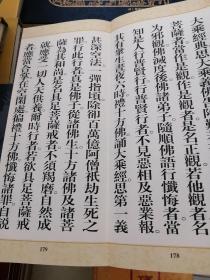 大乘經典
菩薩者當作是觀作是觀者是名正觀若他觀者名
為邪觀佛滅度後佛諸弟子隨順佛語行懺悔者當
知是人行普賢行行普賢行者不見惡相及惡業報
其有眾生晝夜六時禮十方佛誦大乘經思第一義
178
甚深空法一彈指頃除卻百萬億阿僧祇劫生死之
罪行此行者真是佛子從諸佛生十方諸佛及諸菩
薩為其和尚是名具足菩薩戒者不須羯磨自然成
就應受一切人天供養爾時行者若欲具足菩薩戒
者應當合掌在空閑處徧禮十方佛懺悔諸罪自說
179